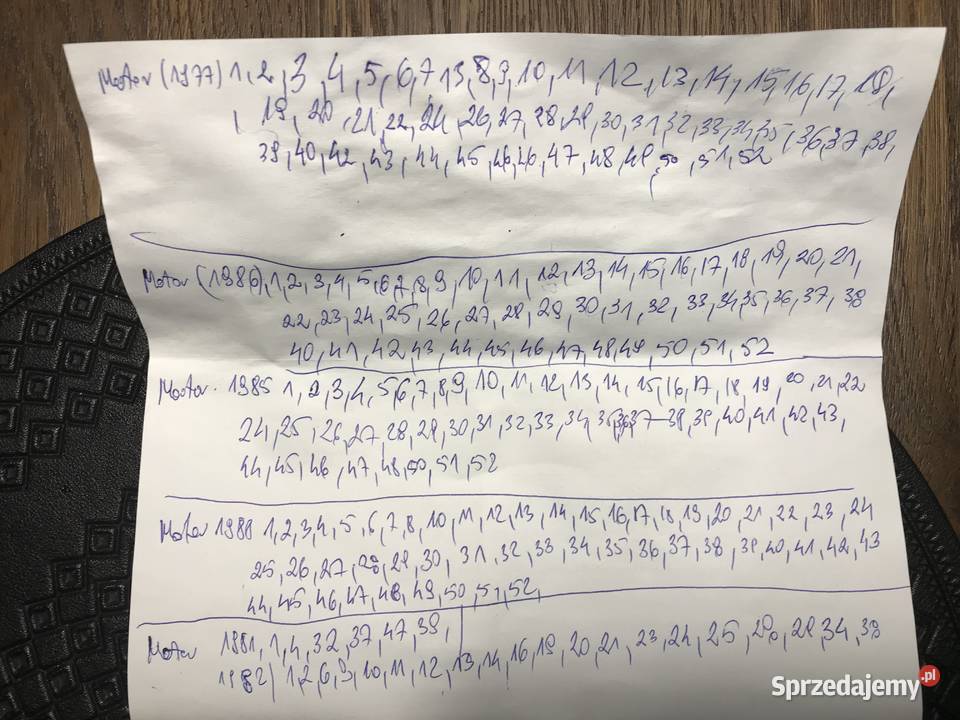 Motor (1977) 1, 2, 3, 4, 5, 6, 7, 13, 8, 9, 10, 11, 12, 13, 14, 15, 16, 17, 18,
, 19, 20, 21, 22, 24, 26, 27, 28, 29, 30, 31, 32, 33, 34, 35, 36, 37, 38,
39, 40, 42, 43, 44, 45, 46, 46, 47, 48, 49, 50, 51, 52
Motor (1986), 1, 2, 3, 4, 5, 6, 7, 8, 9, 10, 11, 12, 13, 14, 15, 16, 17, 18, 19, 20, 21,
22, 23, 24, 25, 26, 27, 28, 29, 30, 31, 32, 33, 34, 35, 36, 37, 38
40, 41, 42, 43, 44, 45, 46, 47, 48, 49, 50, 51, 52
Motor. 1985 1, 2, 3, 4, 5, 6, 7, 8, 9, 10, 11, 12, 13, 14, 15, 16, 17, 18, 19, 20, 21, 22
24, 25, 26, 27, 28, 29, 30, 31, 32, 33, 34, 35, 36, 37 - 38, 39, 40, 41, 42, 43,
44, 45, 46, 47, 48, 50, 51, 52
Motor 1980 1, 2, 3, 4, 5, 6, 7, 8, 10, 11, 12, 13, 14, 15, 16, 17, 18, 19, 20, 21, 22, 23, 24
25, 26, 27, 28, 29, 30, 31, 32, 33, 34, 35, 36, 37, 38, 39, 40, 41, 42, 43
44, 45, 46, 47, 48, 49, 50, 51, 52,
Motor 1981, 1, 4, 32, 37, 47, 39,
1982) 1, 2, 6, 9, 10, 11, 12, 13, 14, 16, 19, 20, 21, 23, 24, 25, 29, 34, 38
Sprzedajemy.pl